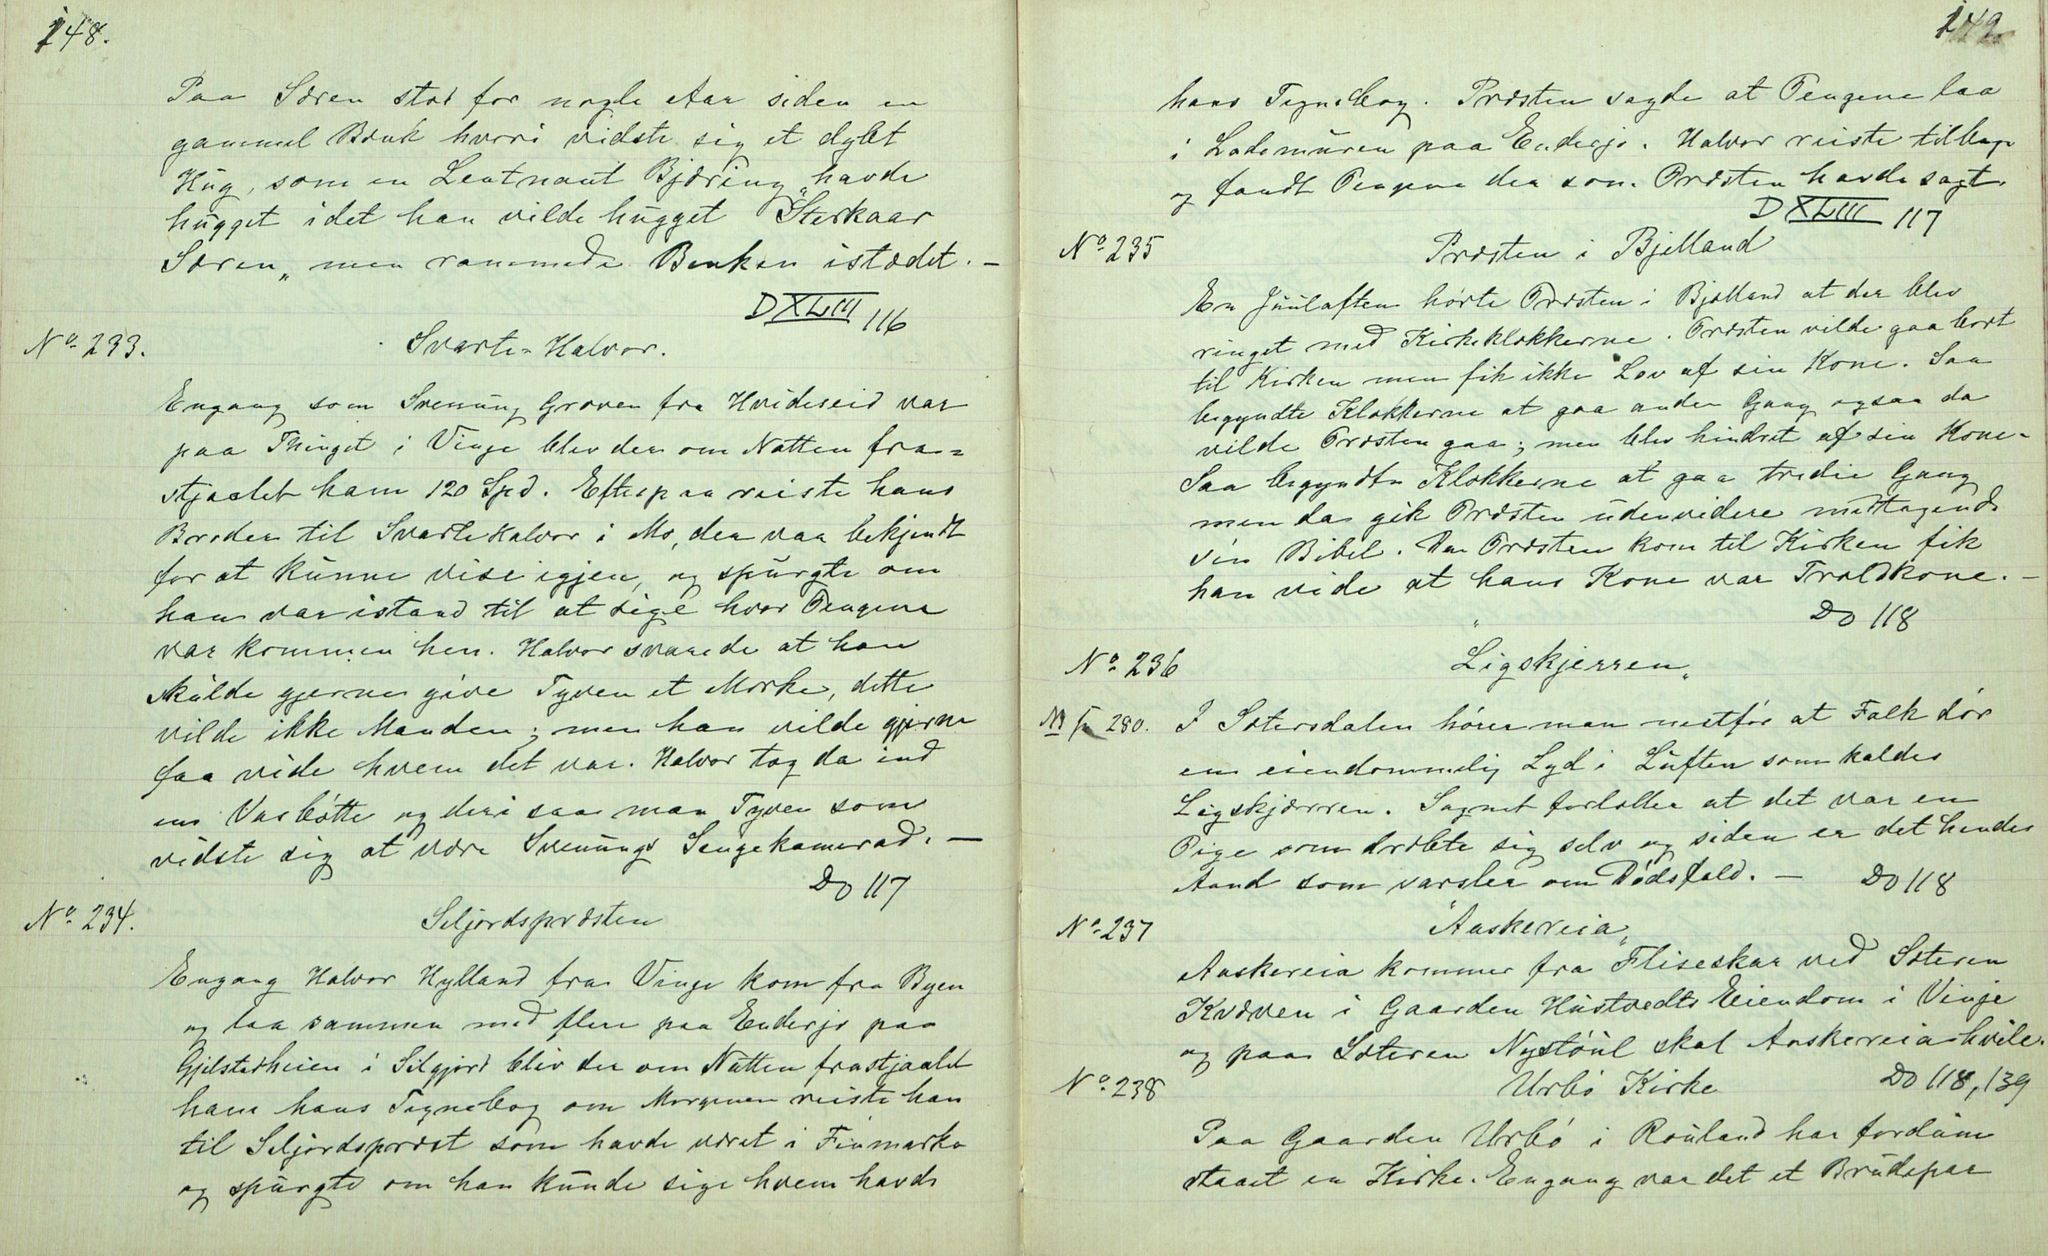 148.
Paa Søren stod for nogle Aar siden en
gammel Bænk hvori vidste sig et dybt
Hug, som en Leutnant Bjæring havde
hugget idet han vilde hugget "Sterkaar
Søren" men rammede Benken istædet. —
DXLIII 116
No 233. Svarte-Halvor.
Engang som Svenung Groven fra Hvideseid var
paa Thinget i Vinje blev der om Natten fra-
stjaalet ham 120 Spd. Efterpaa reiste hans
Broder til Svartehalvor i Mo, der var bekjendt
for at kunne vise igjen, og spurgte om
han var istand til at sige hvor Pengene
var kommen hen. Halvor svarede at han
skulde gjerne give Tyven et Mærke, dette
vilde ikke Manden; men han vilde gjerne
faa vide hvem det var. Halvor tog da ind
en Vasbøtte og deri saa man Tyven som
vidste sig at være Svenungs Sengekamerad. —
Do 117
No 234. Siljordspræsten
Engang Halvor Hylland fra Vinje kom fra Byen
og laa sammen med flere paa Enderjo paa
Gjelstadheien i Silgjord blev der om Natten frastjaalet
ham hans Tegnebog om Morgenen reiste han
til Siljordspræst som havde været i Finmarke
og spurgte om han kunde sige hvem havde
149
hans Tegnebog. Præsten sagde at Pengene laa
i Lademuren paa Enderjo. Halvor reiste tilbage
og fandt Pengene der som Præsten havde sagt.
DXLIII 117
No 235 Præsten i Bjelland
En Juulaften hørte Præsten i Bjelland at der blev
ringet med Kirkeklokkerne. Præsten vilde gaa bort
til Kirken men fik ikke Lov af sin Kone. Saa
begyndte Klokkerne at gaa anden Gang ogsaa da
vilde Præsten gaa; men blev hindret af sin Kone.
Saa begyndte Klokkerne at gaa tredie Gang
men da gik Præsten udenvidere medtagende
sin Bibel. Da Præsten kom til Kirken fik
han vide at hans Kone var Troldkone. —
Do 118
No 236 "Ligskjerren"
280. I Sætersdalen hører man nestfør at Folk dør
en eiendommelig Lyd i Luften som kaldes
Ligskjærren. Sagnet fortæller at det var en
Pige som dræbte sig selv og siden er det hendes
Aand som varsler om Dødsfald. — Do 118
No 237 "Aaskereia"
Aaskereia kommer fra Fliseskar ved Sæteren
Kvæven i Gaarden Hustvedts Eiendom i Vinje
og paa Sæteren Nystøul skal Aaskereia hvile.
Do 118, 139
No 238 Urbø Kirke
Paa Gaarden Urbø i Rouland har fordum
staaet en Kirke. Engang var det et Brudepar